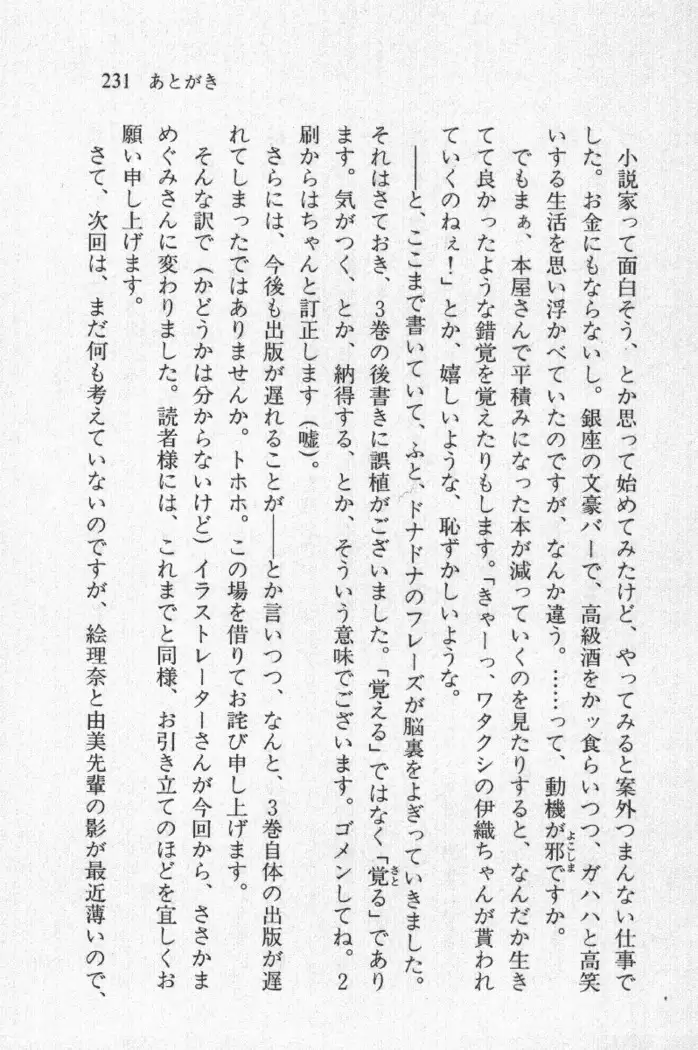 231 あとがき
小説家って面白そう、とか思って始めてみたけど、やってみると案外つまんない仕事で
した。お金にもならないし。銀座の文豪バーで、高級酒をかッ食らいつつ、ガハハと高笑
いする生活を思い浮かべていたのですが、なんか違う。……って、動機が邪ですか。
よこしま
でもまぁ、本屋さんで平積みになった本が減っていくのを見たりすると、なんだか生き
てて良かったような錯覚を覚えたりもします。「きゃーっ、ワタクシの伊織ちゃんが貰われ
ていくのねぇ！」とか、嬉しいような、恥ずかしいような。
――と、ここまで書いていて、ふと、ドナドナのフレーズが脳裏をよぎっていきました。
それはさておき、3巻の後書きに誤植がございました。「覚える」ではなく「覚る」であり
さと
ます。気がつく、とか、納得する、とか、そういう意味でございます。ゴメンしてね。2
刷からはちゃんと訂正します（嘘）。
さらには、今後も出版が遅れることが――とか言いつつ、なんと、3巻自体の出版が遅
れてしまったではありませんか。トホホ。この場を借りてお詫び申し上げます。
そんな訳で（かどうかは分からないけど）イラストレーターさんが今回から、ささかま
めぐみさんに変わりました。読者様には、これまでと同様、お引き立てのほどを宜しくお
願い申し上げます。
さて、次回は、まだ何も考えていないのですが、絵理奈と由美先輩の影が最近薄いので、